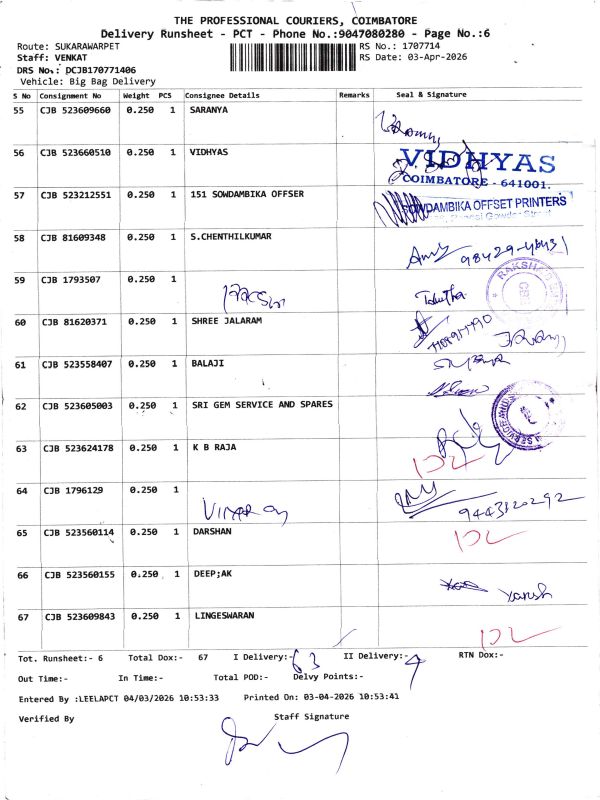 THE PROFESSIONAL COURIERS, COIMBATORE
Delivery Runsheet - PCT - Phone No.:9047080280 - Page No.:6
Route: SUKARAWARPET
RS No.: 1707714
Staff: VENKAT
RS Date: 03-Apr-2026
DRS No.: DCJB170771406
Vehicle: Big Bag Delivery
S No Consignment No Weight PCS Consignee Details Remarks Seal & Signature
55 CJB 523609660 0.250 1 SARANYA
56 CJB 523660510 0.250 1 VIDHYAS
VIDHYAS
COIMBATORE - 641001.
57 CJB 523212551 0.250 1 151 SOWDAMBIKA OFFSER
OWDAMBIKA OFFSET PRINTERS
58 CJB 81609348 0.250 1 S.CHENTHILKUMAR
59 CJB 1793507 0.250 1
60 CJB 81620371 0.250 1 SHREE JALARAM
61 CJB 523558407 0.250 1 BALAJI
62 CJB 523605003 0.250 1 SRI GEM SERVICE AND SPARES
63 CJB 523624178 0.250 1 K B RAJA
64 CJB 1796129 0.250 1
9443120292
65 CJB 523560114 0.250 1 DARSHAN
66 CJB 523560155 0.250 1 DEEP;AK
67 CJB 523609843 0.250 1 LINGESWARAN
Tot. Runsheet:- 6 Total Dox:- 67 I Delivery:- 63 II Delivery:- 4 RTN Dox:-
Out Time:- In Time:- Total POD:- Delvy Points:-
Entered By :LEELAPCT 04/03/2026 10:53:33 Printed On: 03-04-2026 10:53:41
Verified By Staff Signature